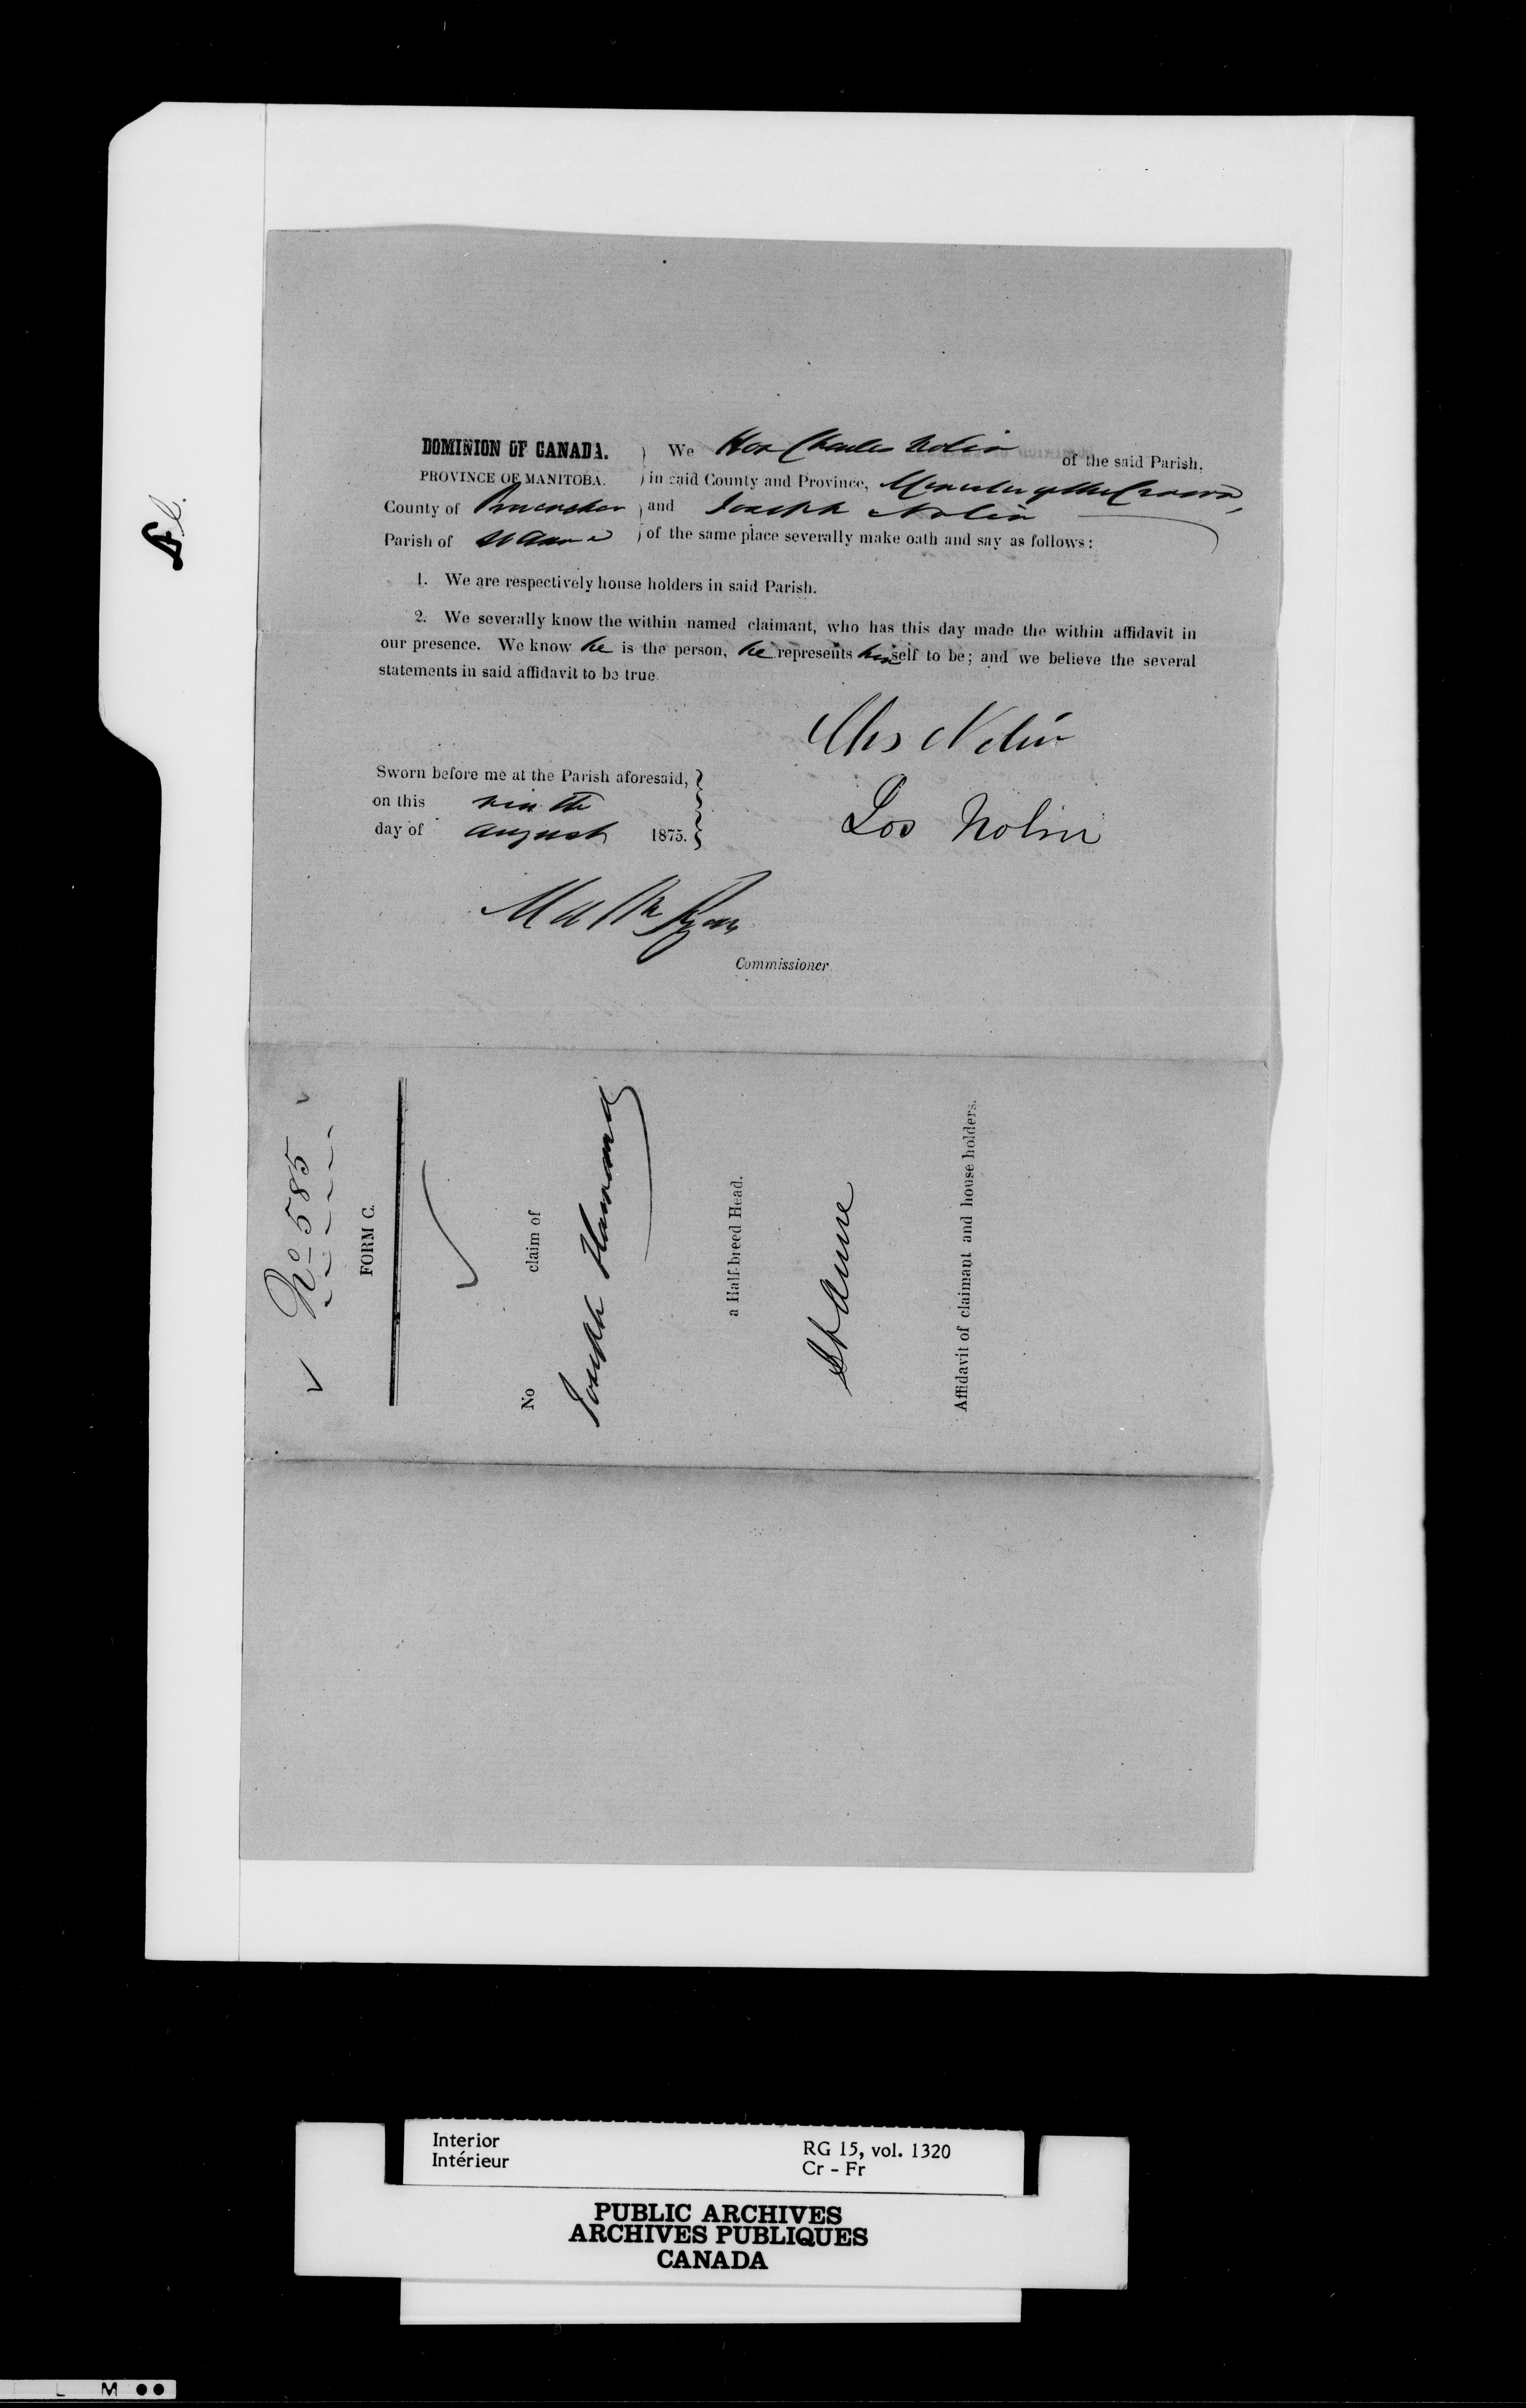 DOMINION OF CANADA.
PROVINCE OF MANITOBA.
County of Provencher
Parish of St Anne
We Hon Charles Nolin of the said Parish,
in said County and Province, Minister of the Crown,
and Joseph Nolin
of the same place severally make oath and say as follows:
1. We are respectively house holders in said Parish.
2. We severally know the within named claimant, who has this day made the within affidavit in
our presence. We know he is the person, he represents himself to be; and we believe the several
statements in said affidavit to be true.
Chs Nolin
Jos Nolin
Sworn before me at the Parish aforesaid,
on this ninth
day of august 1875.
Matt Ryan
Commissioner
No 585
FORM C.
No claim of
Joseph Hamond
a Half-breed Head.
St Anne
Affidavit of claimant and house holders.
Interior
Intérieur
RG 15, vol. 1320
Cr - Fr
PUBLIC ARCHIVES
ARCHIVES PUBLIQUES
CANADA
L M